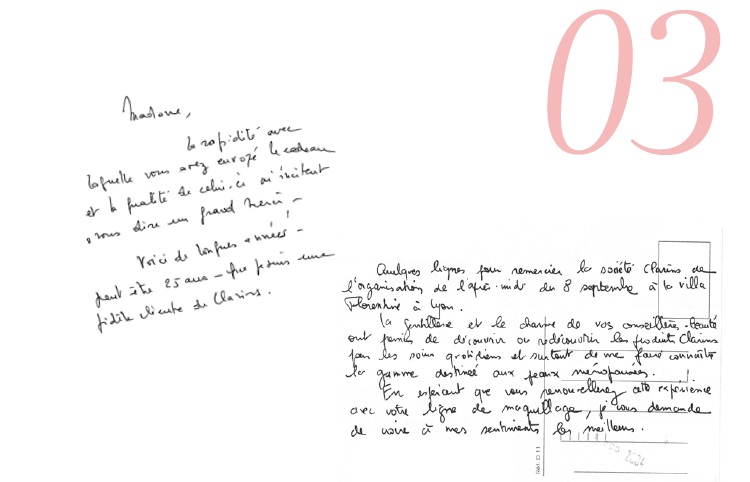 03
Madame,
la rapidité avec
laquelle vous avez envoyé le cadeau
et la qualité de celui-ci m'incitent
à vous dire un grand merci -
Voici de longues années! -
peut être 25 ans - que je suis une
fidèle cliente de Clarins.
Quelques lignes pour remercier la société Clarins de
l'organisation de l'après-midi du 8 septembre à la villa
Florentine à Lyon.
La gentillesse et le charme de vos conseillères-beauté
ont permis de découvrir ou redécouvrir les produits Clarins
pour les soins quotidiens et surtout de me faire connaître
la gamme destinée aux peaux ménopausées.
En espérant que vous renouvellerez cette expérience
avec votre ligne de maquillage, je vous demande
de croire à mes sentiments les meilleurs.